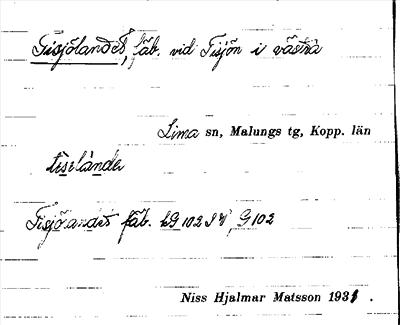 Tisjölandet, fäb. vid Tisjön i västra
Lima sn, Malungs tg, Kopp. län
tìselànde
Tisjölandet fäb. kG 102 SV, G 102
Niss Hjalmar Matsson 1931.